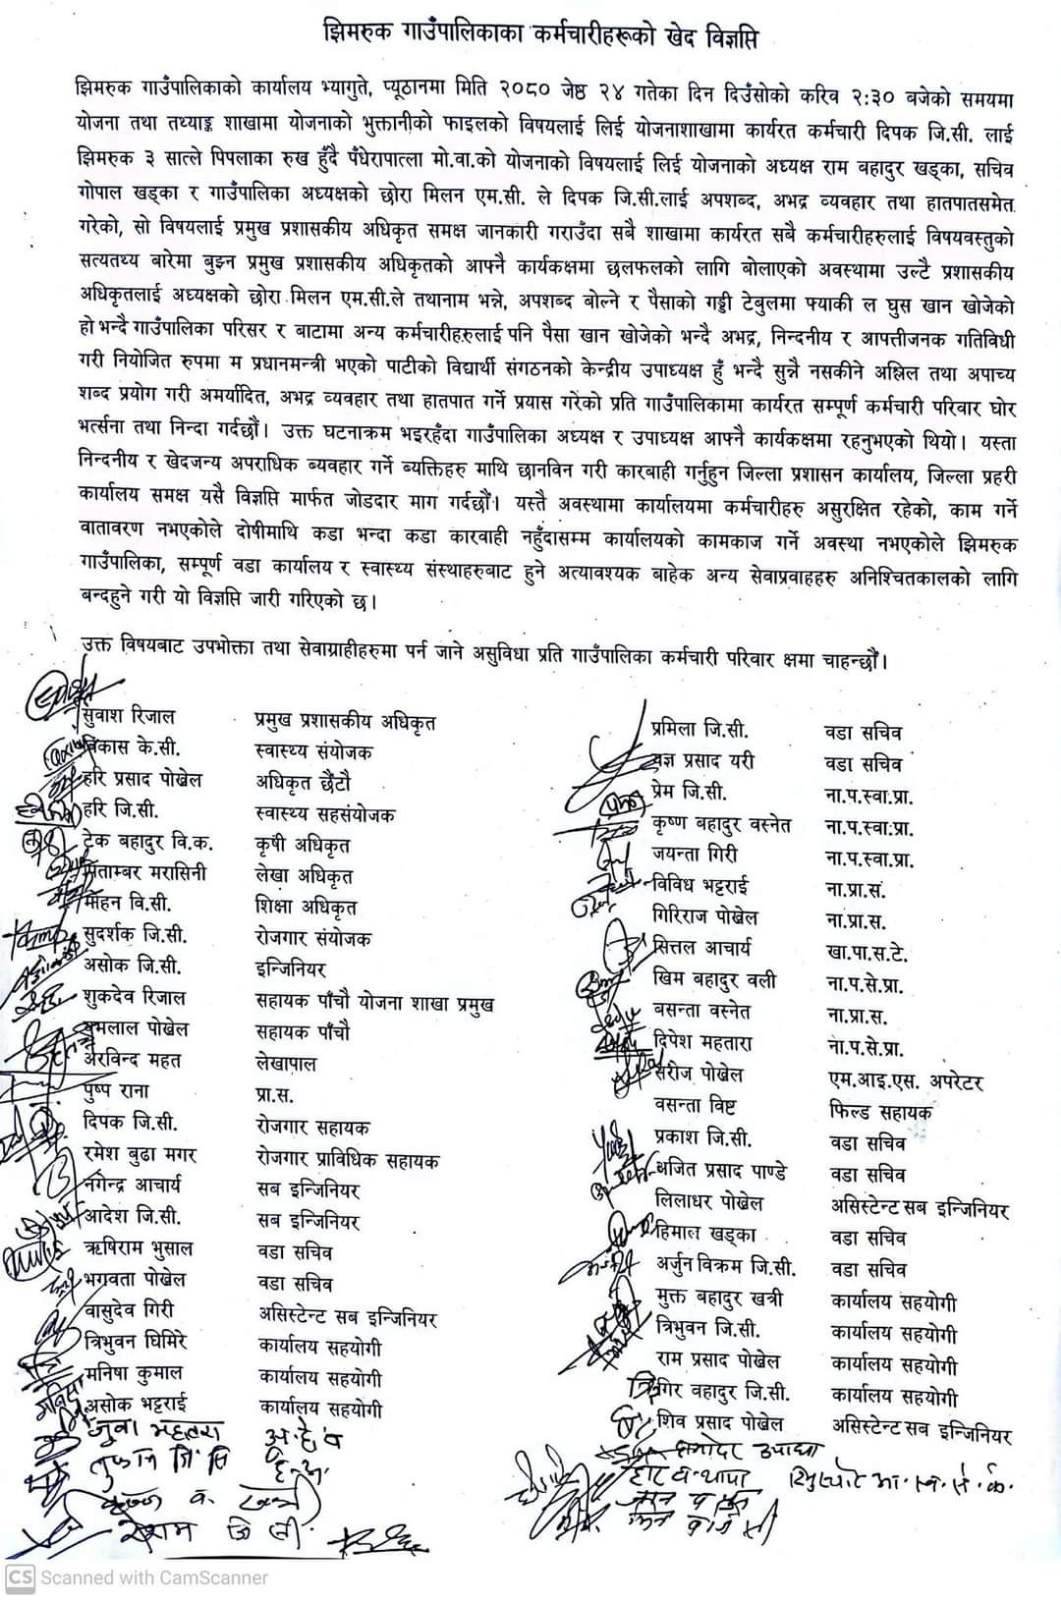 झिमरुक गाउँपालिकाका कर्मचारीहरूको खेद विज्ञप्ति
झिमरुक गाउँपालिकाको कार्यालय भ्यागुते, प्यूठानमा मिति २०८० जेष्ठ २४ गतेका दिन दिउँसोको करिव २:३० वजेको समयमा
योजना तथा तथ्याङ्क शाखामा योजनाको भुक्तानीको फाइलको विषयलाई लिई योजनाशाखामा कार्यरत कर्मचारी दिपक जि.सी. लाई
झिमरुक ३ सात्ले पिपलाका रुख हुँदै पँधेरापात्ला मो.वा.को योजनाको विषयलाई लिई योजनाको अध्यक्ष राम बहादुर खड्का, सचिव
गोपाल खड्का र गाउँपालिका अध्यक्षको छोरा मिलन एम.सी. ले दिपक जि.सी.लाई अपशब्द, अभद्र व्यवहार तथा हातपातसमेत
गरेको, सो विषयलाई प्रमुख प्रशासकीय अधिकृत समक्ष जानकारी गराउँदा सबै शाखामा कार्यरत सबै कर्मचारीहरुलाई विषयवस्तुको
सत्यतथ्य बारेमा बुझ्न प्रमुख प्रशासकीय अधिकृतको आफ्नै कार्यकक्षमा छलफलको लागि बोलाएको अवस्थामा उल्टै प्रशासकीय
अधिकृतलाई अध्यक्षको छोरा मिलन एम.सी.ले तथानाम भन्ने, अपशब्द बोल्ने र पैसाको गड्डी टेबुलमा फ्याकी ल घुस खान खोजेको
हो भन्दै गाउँपालिका परिसर र बाटामा अन्य कर्मचारीहरुलाई पनि पैसा खान खोजेको भन्दै अभद्र, निन्दनीय र आपत्तीजनक गतिविधी
गरी नियोजित रुपमा म प्रधानमन्त्री भएको पाटीको विद्यार्थी संगठनको केन्द्रीय उपाध्यक्ष हुँ भन्दै सुन्नै नसकीने अश्लिल तथा अपाच्य
शब्द प्रयोग गरी अमर्यादित, अभद्र व्यवहार तथा हातपात गर्ने प्रयास गरेको प्रति गाउँपालिकामा कार्यरत सम्पूर्ण कर्मचारी परिवार घोर
भर्त्सना तथा निन्दा गर्दछौं। उक्त घटनाक्रम भइरहँदा गाउँपालिका अध्यक्ष र उपाध्यक्ष आफ्नै कार्यकक्षमा रहनुभएको थियो। यस्ता
निन्दनीय र खेदजन्य अपराधिक व्यवहार गर्ने व्यक्तिहरु माथि छानविन गरी कारबाही गर्नुहुन जिल्ला प्रशासन कार्यालय, जिल्ला प्रहरी
कार्यालय समक्ष यसै विज्ञप्ति मार्फत जोडदार माग गर्दछौं। यस्तै अवस्थामा कार्यालयमा कर्मचारीहरु असुरक्षित रहेको, काम गर्ने
वातावरण नभएकोले दोषीमाथि कडा भन्दा कडा कारवाही नहुँदासम्म कार्यालयको कामकाज गर्ने अवस्था नभएकोले झिमरुक
गाउँपालिका, सम्पूर्ण वडा कार्यालय र स्वास्थ्य संस्थाहरुबाट हुने अत्यावश्यक बाहेक अन्य सेवाप्रवाहहरु अनिश्चितकालको लागि
बन्दहुने गरी यो विज्ञप्ति जारी गरिएको छ।
उक्त विषयबाट उपभोक्ता तथा सेवाग्राहीहरुमा पर्न जाने असुविधा प्रति गाउँपालिका कर्मचारी परिवार क्षमा चाहन्छौं।
सुवाश रिजाल प्रमुख प्रशासकीय अधिकृत
विकास के.सी. स्वास्थ्य संयोजक
हरि प्रसाद पोखेल अधिकृत छैंटौ
हरि जि.सी. स्वास्थ्य सहसंयोजक
टेक बहादुर वि.क. कृषी अधिकृत
मिताम्बर मरासिनी लेखा अधिकृत
मोहन वि.सी. शिक्षा अधिकृत
सुदर्शक जि.सी. रोजगार संयोजक
असोक जि.सी. इन्जिनियर
शुकदेव रिजाल सहायक पाँचौ योजना शाखा प्रमुख
पोखेल सहायक पाँचौ
अरविन्द महत लेखापाल
पुष्प राना प्रा.स.
दिपक जि.सी. रोजगार सहायक
रमेश बुढा मगर रोजगार प्राविधिक सहायक
नगेन्द्र आचार्य सब इन्जिनियर
आदेश जि.सी. सब इन्जिनियर
ऋषिराम भुसाल वडा सचिव
भगवता पोखेल वडा सचिव
वासुदेव गिरी असिस्टेन्ट सब इन्जिनियर
त्रिभुवन घिमिरे कार्यालय सहयोगी
मनिषा कुमाल कार्यालय सहयोगी
असोक भट्टराई कार्यालय सहयोगी
जुवा महतरा अ.हे.व
कृष्ण व. खत्री
रेशम जि सी.
प्रमिला जि.सी. वडा सचिव
यज्ञ प्रसाद यरी वडा सचिव
प्रेम जि.सी. ना.प.स्वा.प्रा.
कृष्ण बहादुर वस्नेत ना.प.स्वा.प्रा.
जयन्ता गिरी ना.प.स्वा.प्रा.
विविध भट्टराई ना.प्रा.सं.
गिरिराज पोखेल ना.प्रा.स.
सित्तल आचार्य खा.पा.स.टे.
खिम बहादुर वली ना.प.से.प्रा.
बसन्ता वस्नेत ना.प्रा.स.
दिपेश महतारा ना.प.से.प्रा.
सरोज पोखेल एम.आइ.एस. अपरेटर
वसन्ता विष्ट फिल्ड सहायक
प्रकाश जि.सी. वडा सचिव
अजित प्रसाद पाण्डे वडा सचिव
लिलाधर पोखेल असिस्टेन्ट सब इन्जिनियर
हिमाल खड्का वडा सचिव
अर्जुन विक्रम जि.सी. वडा सचिव
मुक्त बहादुर खत्री कार्यालय सहयोगी
त्रिभुवन जि.सी. कार्यालय सहयोगी
राम प्रसाद पोखेल कार्यालय सहयोगी
वहादुर जि.सी. कार्यालय सहयोगी
शिव प्रसाद पोखेल असिस्टेन्ट सब इन्जिनियर
CS Scanned with CamScanner